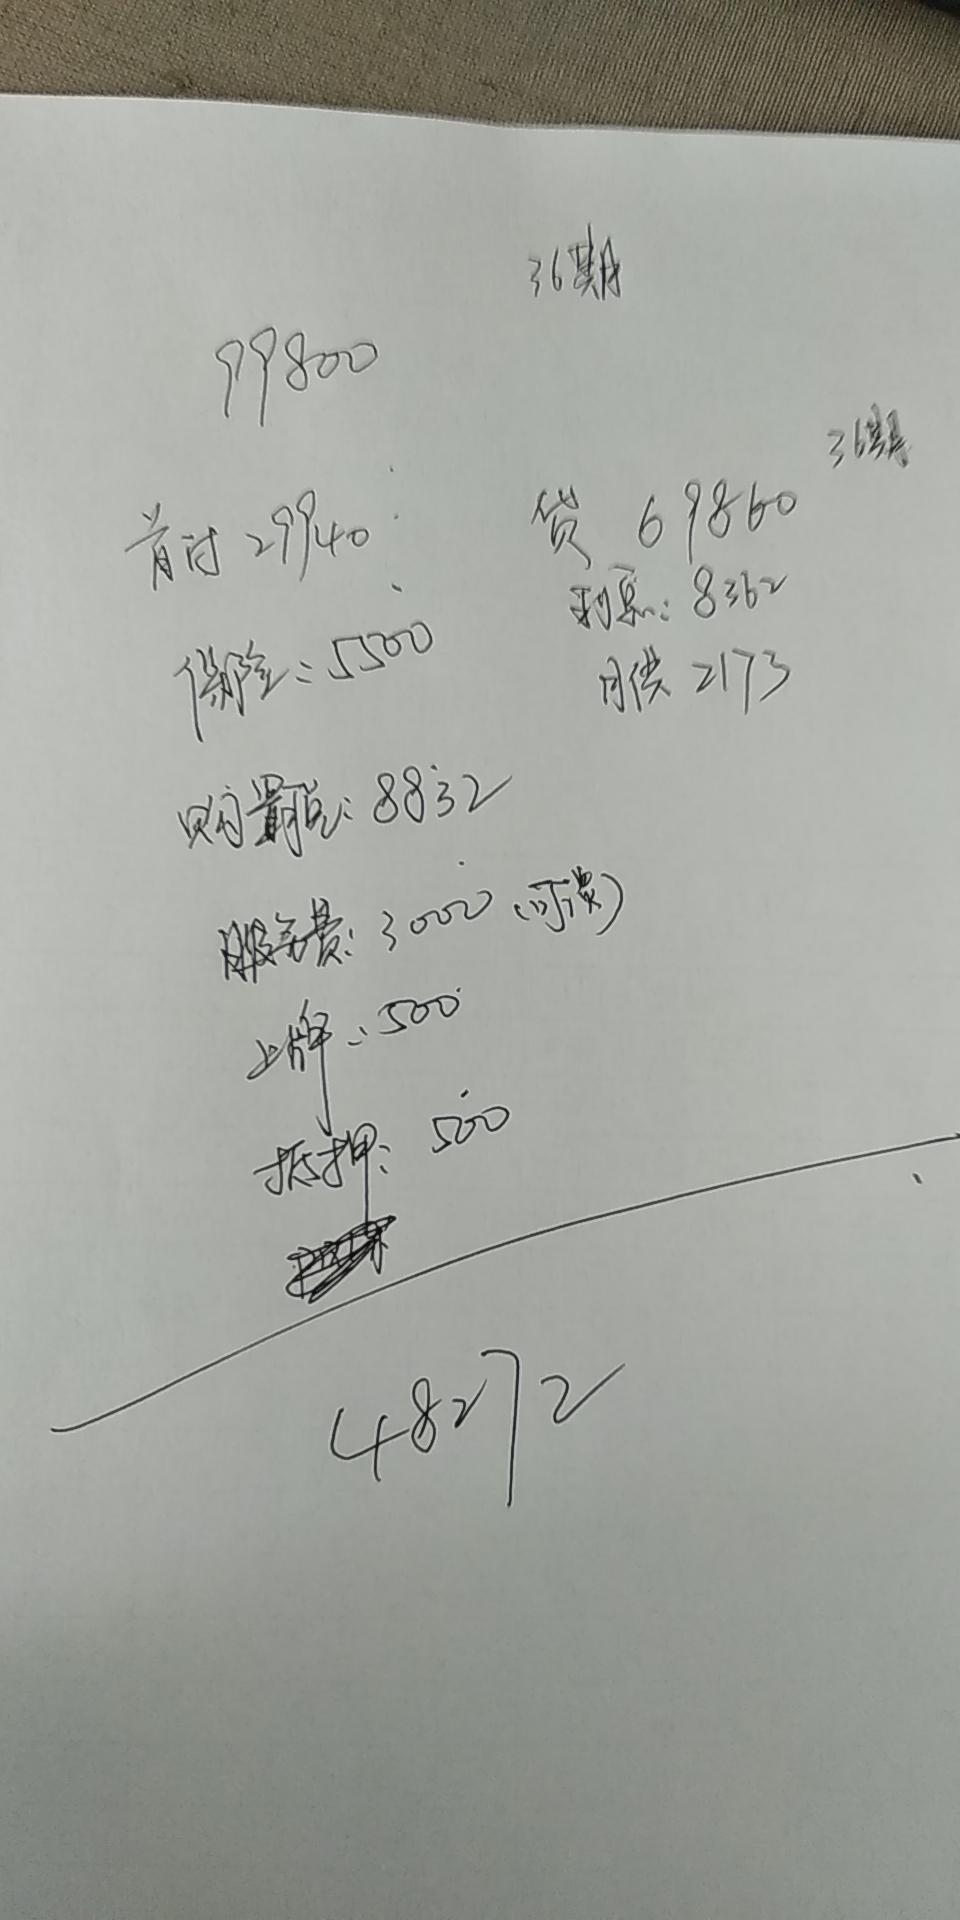 36期
99800
36期
首付 29940
贷 69860
利息: 8362
月供 2173
保险: 5500
购置税: 8832
服务费: 3000
上牌: 500
抵押: 500
48272